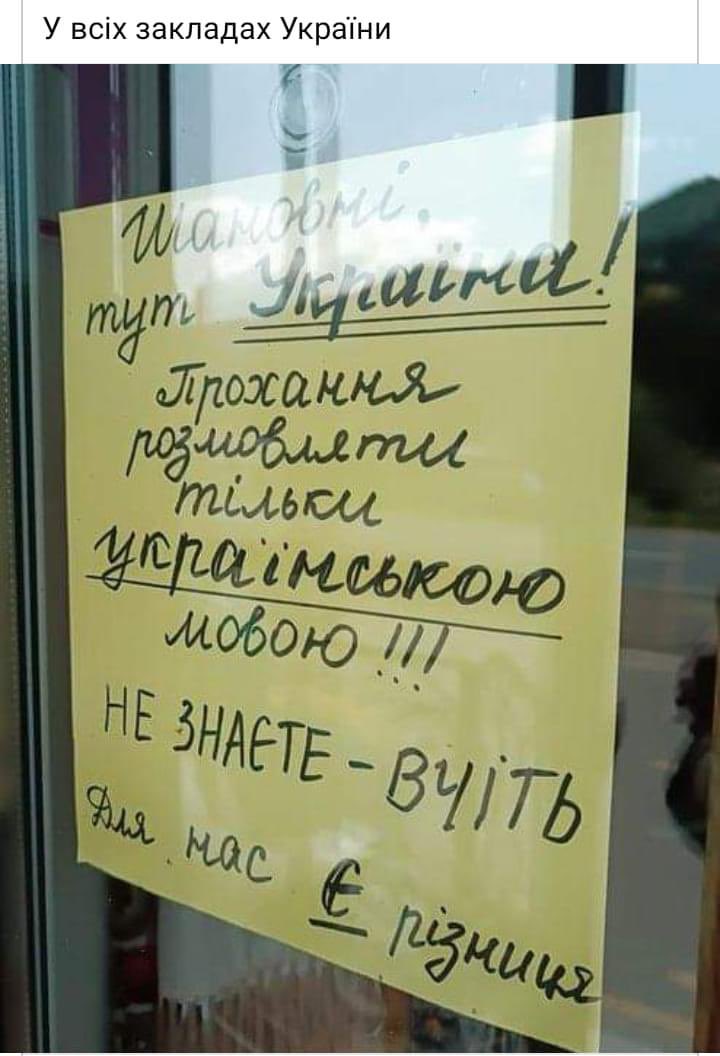 У всіх закладах України
Шановні,
тут Україна!
Прохання
розмовляти
тільки
українською
мовою !!!
НЕ ЗНАЄТЕ - ВЧІТЬ
Для нас Є різниця